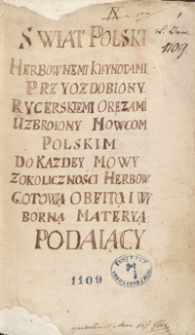 SWIAT POLSKI
HERBOWNEMI KLEYNOTAMI
PRZYOZDOBIONY
RYCERSKIEMI ORĘZAMI
UZBROIONY MOWCOM
POLSKIM
DO KAZDEY MOWY
Z OKOLICZNOŚCI HERBOW
GOTOWĄ OBFITĄ I WY
BORNĄ MATERYĄ
PODAIĄCY
1109
1109